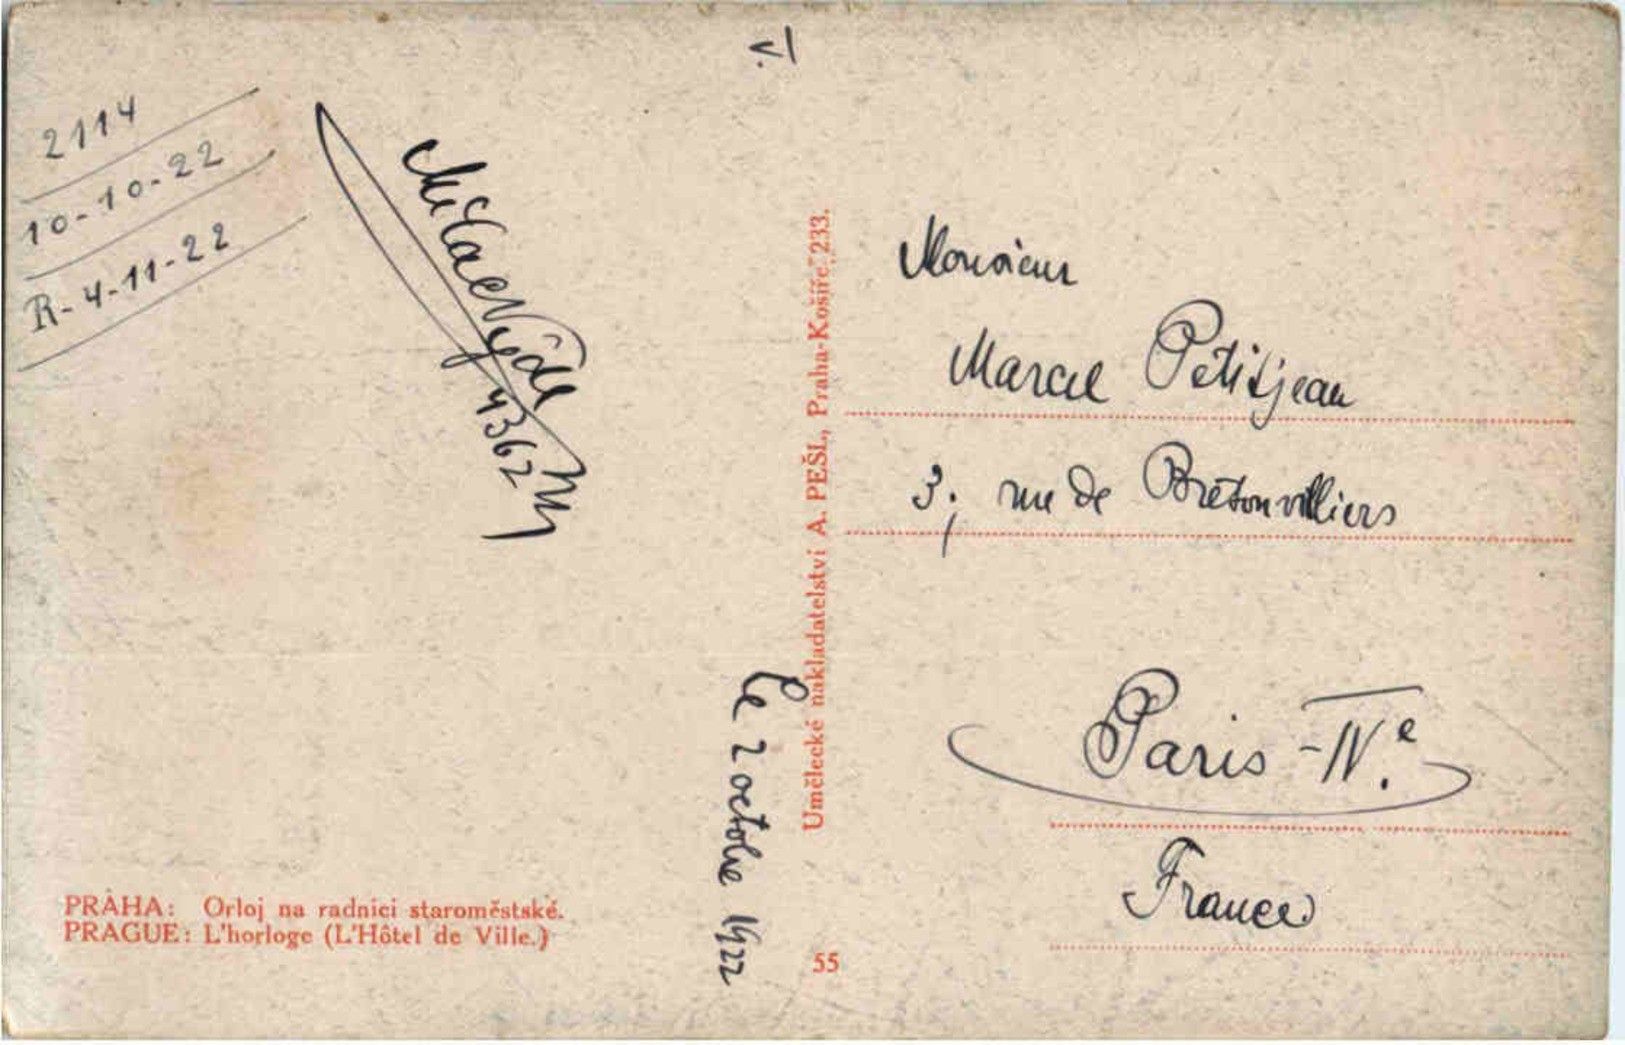 2114
10-10-22
R-4-11-22
4362
V.
Le 2 octobre 1922
Umělecké nakladatelství A. PEŠL, Praha-Košíře 233.
Monsieur
Marcel Petitjean
3, rue de Bretonvilliers
Paris-IVe.
France
PRAHA: Orloj na radnici staroměstské.
PRAGUE: L'horloge (L'Hôtel de Ville.)
55